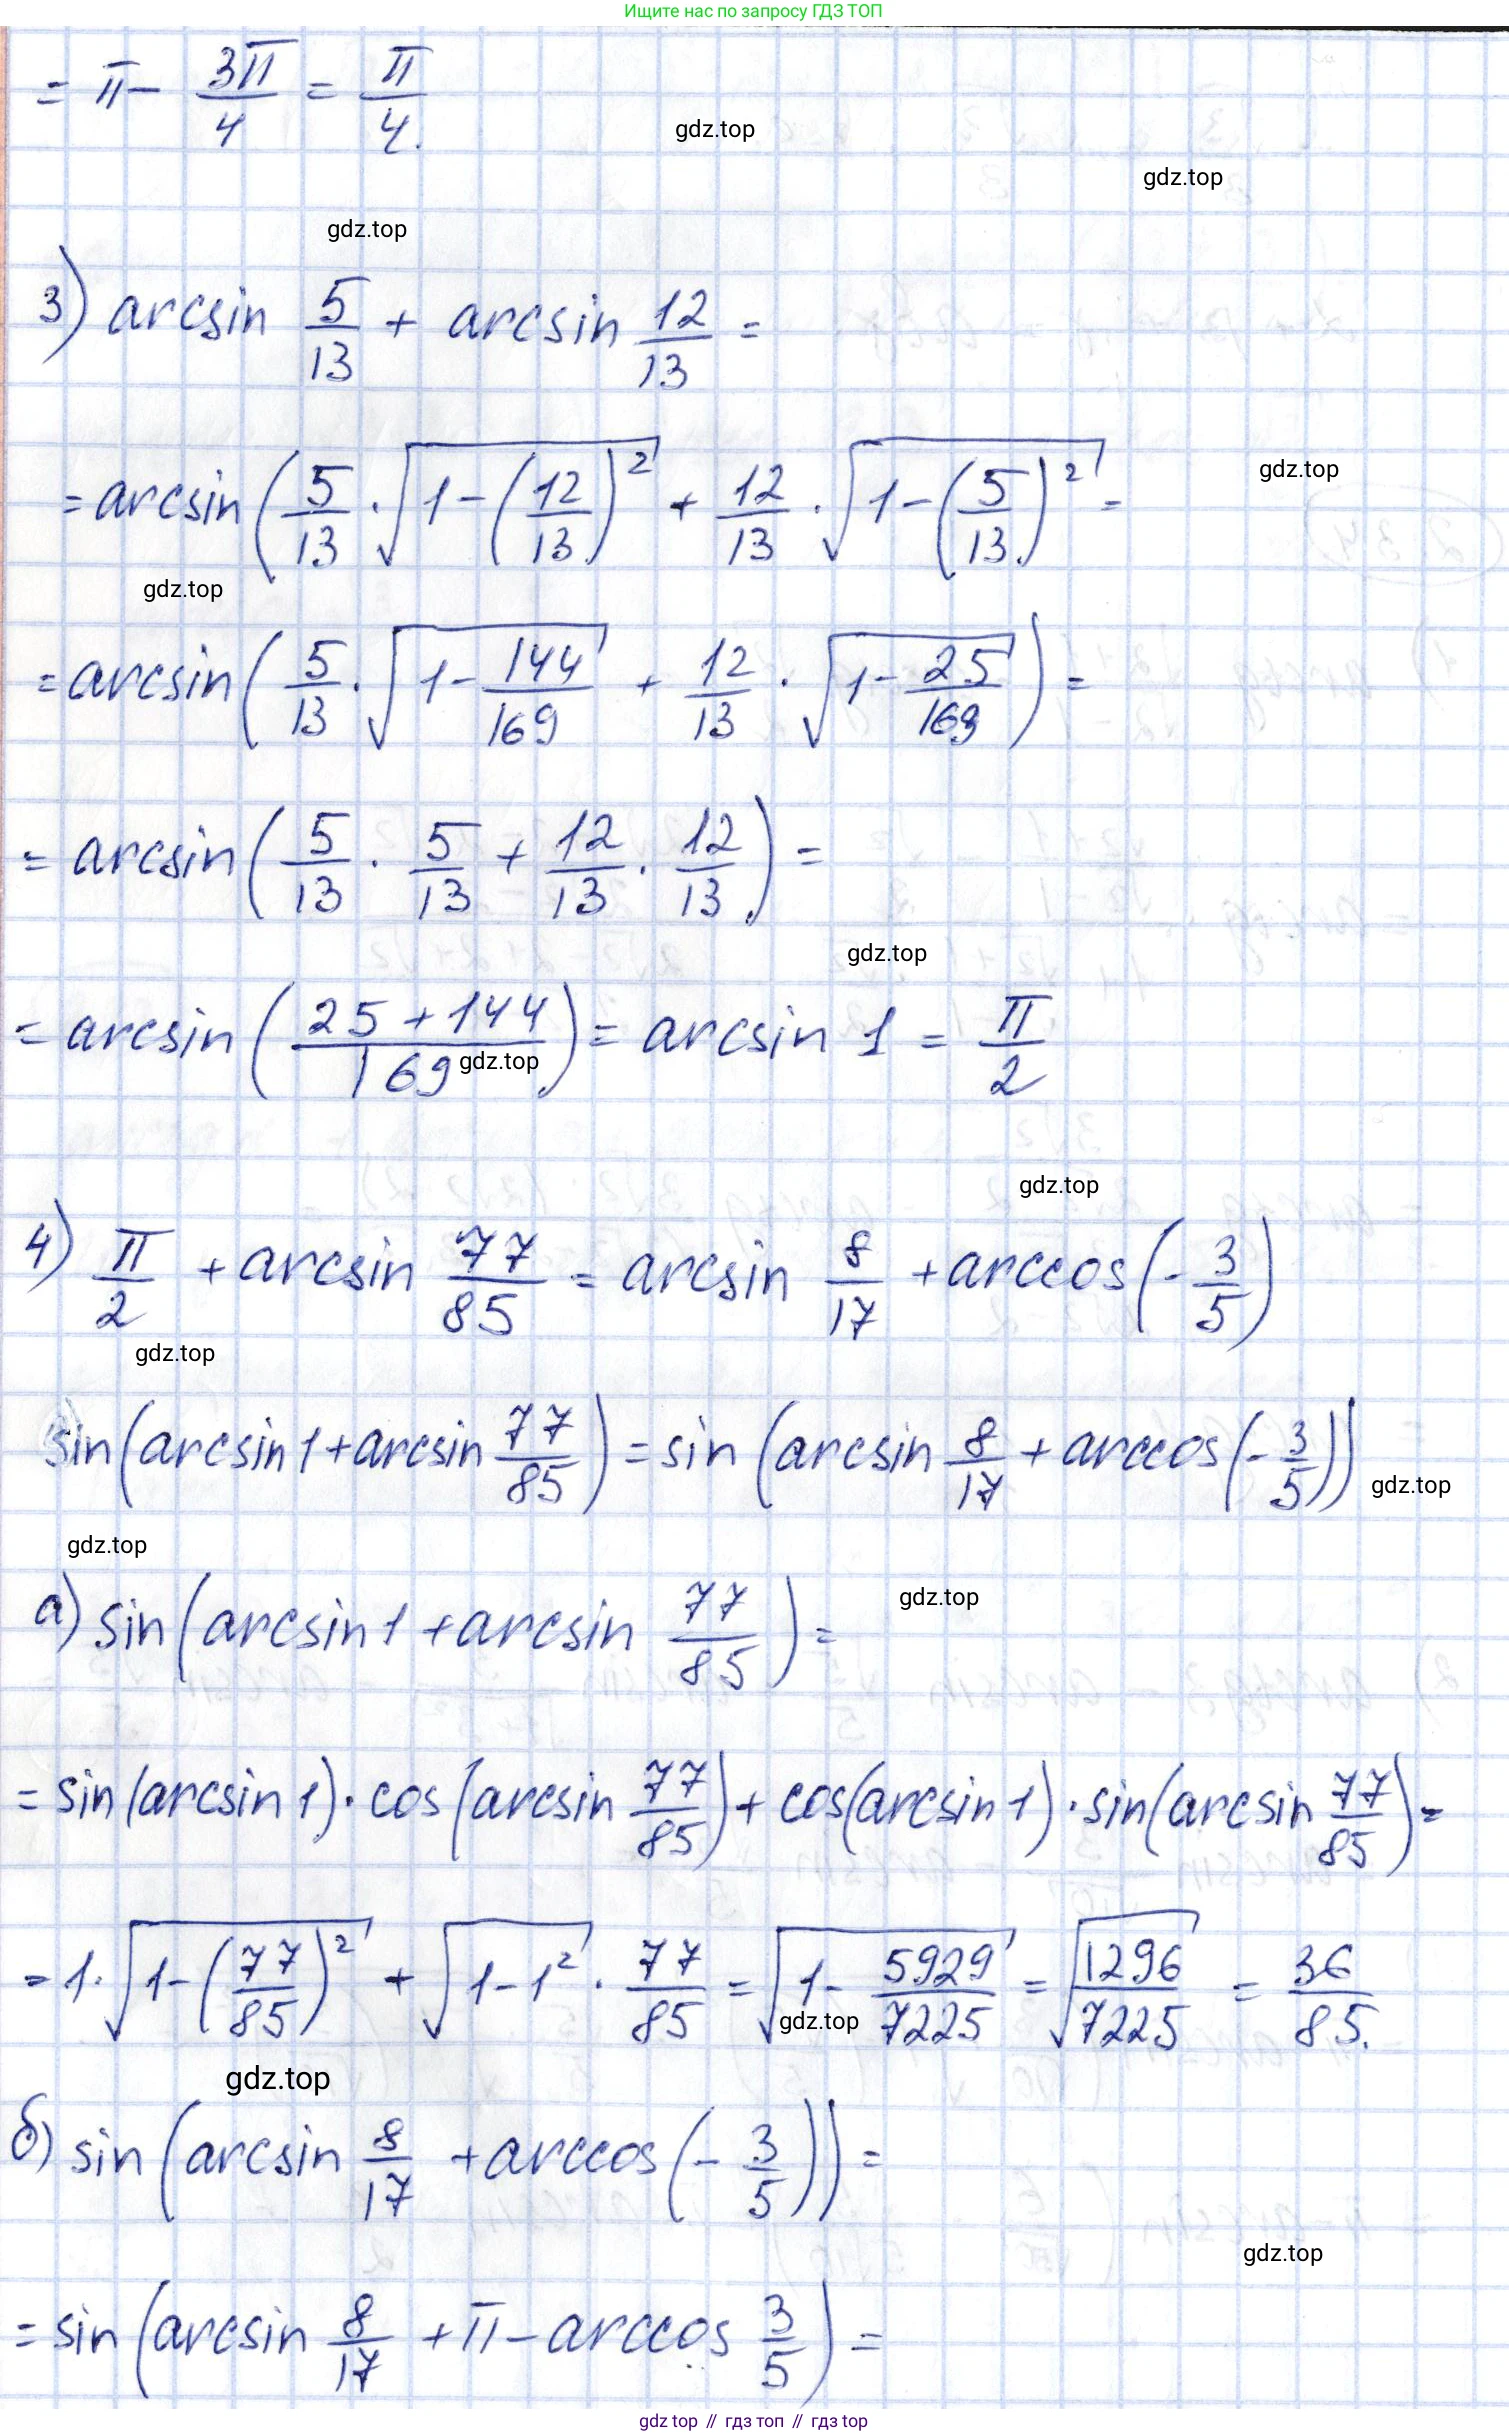 Ищите нас по запросу ГДЗ ТОП
= π - 3π/4 = π/4.
gdz.top
gdz.top
gdz.top
3) arcsin 5/13 + arcsin 12/13 =
= arcsin(5/13 · √(1-(12/13)²) + 12/13 · √(1-(5/13)²) =
gdz.top
gdz.top
= arcsin(5/13 · √(1-144/169) + 12/13 · √(1-25/169)) =
= arcsin(5/13 · 5/13 + 12/13 · 12/13) =
gdz.top
= arcsin((25+144)/169) = arcsin 1 = π/2
gdz.top
gdz.top
4) π/2 + arcsin 77/85 = arcsin 8/17 + arccos(-3/5)
gdz.top
sin(arcsin 1 + arcsin 77/85) = sin(arcsin 8/17 + arccos(-3/5))
gdz.top
gdz.top
а) sin(arcsin 1 + arcsin 77/85) =
gdz.top
= sin(arcsin 1) · cos(arcsin 77/85) + cos(arcsin 1) · sin(arcsin 77/85) =
= 1 · √(1-(77/85)²) + √(1-1²) · 77/85 = √(1-5929/7225) = √(1296/7225) = 36/85.
gdz.top
gdz.top
б) sin(arcsin 8/17 + arccos(-3/5)) =
gdz.top
= sin(arcsin 8/17 + π - arccos 3/5) =
gdz top // гдз топ // гдз top